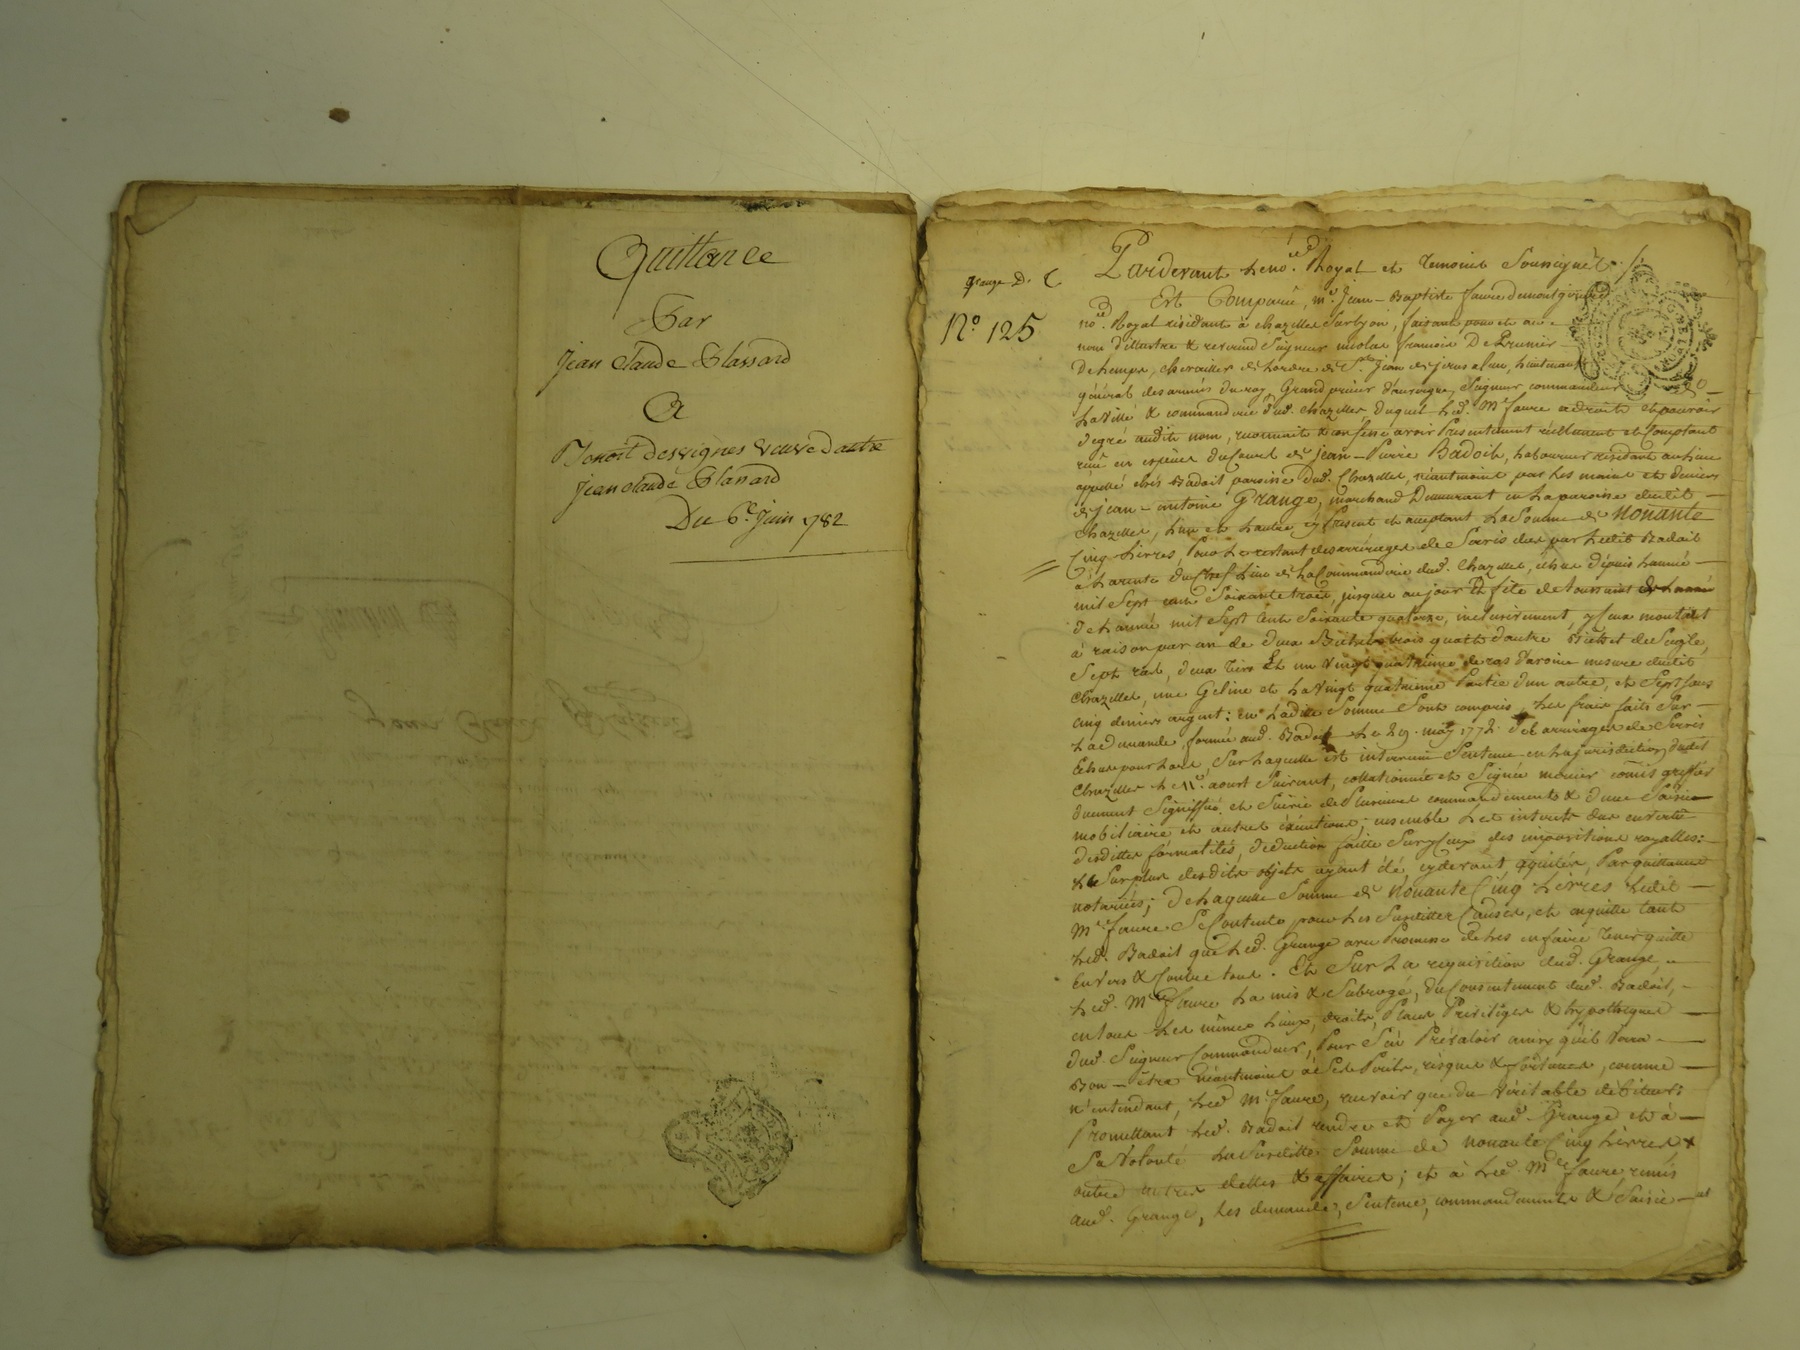 Quittance
Par
Jean Claude Blassard
A
Benoit desvignes veuve dautre
jean claude Blassard
Du 6e. Juin 1782
grange D. C
N.o 125
Pardevant Le no.re Royal et temoins Soussignés
Est Comparu, m.e Jean-Baptiste faure demontgirard
no.re Royal résidant à chazelles Sur Lyon, faisant pour et au
nom d'illustre & reverend Seigneur nicolas francois De Prunier
De Lemps, chevaillier de Lordre de S.t Jean de jerusalem, Lieutenant
général des armées du roy Grand prieur d'auvergne, Seigneur commandeur
La Ville & commanderie dud. chazelles, Duquel Led. M.e faure a droit et pouvoir
de gré audit nom, reconnoit & confesse avoir Presentement réellement et Comptant
reçu en espèces du Cours de jean-Pierre Badoit, Laboureur résidant au Lieu
appellé chés Badoit paroisse dud. Chazelles, néantmoins par Les mains et deniers
de jean-antoine Grange, marchand Demeurant en La paroisse dudit
chazelles, L'un et L'autre cy Present et acceptant La Somme de nonante
Cinq Livres, Pour Le restant des arrérages de Servis dus par Ledit Badoit
à La rente du Chef Lieu de La Commanderie dud. Chazelles, échus dépuis L'année
mil Sept cent Soixante trois, jusques au jour & fête de toussaint
de L'année mil Sept Cent Soixante quatorze, inclusivement, yceux montant
à raison par an de deux Bichets trois quarts d'autre Bichet de Seigle,
Sept ras, deux tiers Et un Vingt quatrième de ras d'avoine mesure dudit
Chazelles, une Geline et La Vingt quatrieme Partie d'un autre, et Sept Sous
cinq deniers argent: en Ladite Somme Sont compris, Les frais faits Sur
La demande, formée aud. Badoit Le 29. may 1772. des arrérages de Servis
Echus pour Lors, Sur Laquelle est intervenu Sentence en La jurisdiction dudit
Chazelles Le 11.e aoust Suivant, collationnée et Signée monier commis greffier
duement Signiffiée et Suivie de Plusieurs commandements & d'une Saisie
mobiliaire et autres éxécutions, ensemble Les interets dus en vertu
desdittes formalités, deduction faitte Sur yceux des impositions royalles:
Le Surplus desdits objets ayant été, cydevant aquités, Par quittances
notariées; De Laquelle Somme de nonante Cinq Livres Ledit
M.e faure Se Contente pour Les Susdittes Causes, et en quitte tant
Led. Badoit que Led. Grange avec Promesse de Les en faire tenir quitte
Envers & Contre tous. Et Sur La requisition dud. Grange,
Led. M.e faure La mis & Subroge, du Consentement dud. Badoit,
en tous Les mêmes Lieux, droits, Places Privilèges & hypotheques
dud. Seigneur Commandeur, Pour S'en Prévaloir ainsi qu'il verra
Bon-être néantmoins à Ses Perils, risques & fortunes, comme
n'entendant, Led. M.e faure, recevoir que du véritable débiteur;
Promettant Led. Badoit rendre et Payer aud. Grange et à
Sa Volonté La Susditte Somme de nonante Cinq Livres &
outre autres dettes & affaires; et à Led. M.e faure remis
aud. Grange, Les demande, Sentence, commandements & Saisie